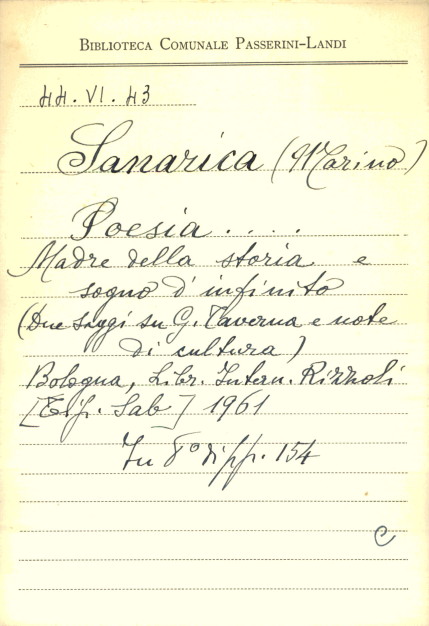 BIBLIOTECA COMUNALE PASSERINI-LANDI
44.VI.43
Sanarica (Marino)
Poesia.....
Madre della storia e
sogno d'infinito
(Due saggi su G. Taverna e note
di cultura)
Bologna, Libr. Intern. Rizzoli
[Tip. Sab] 1961
In 8° di pp. 154
C